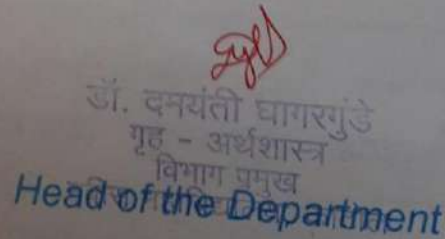 डॉ. दमयंती घागरगुंडे
गृह - अर्थशास्त्र
विभाग प्रमुख
Head of the Department